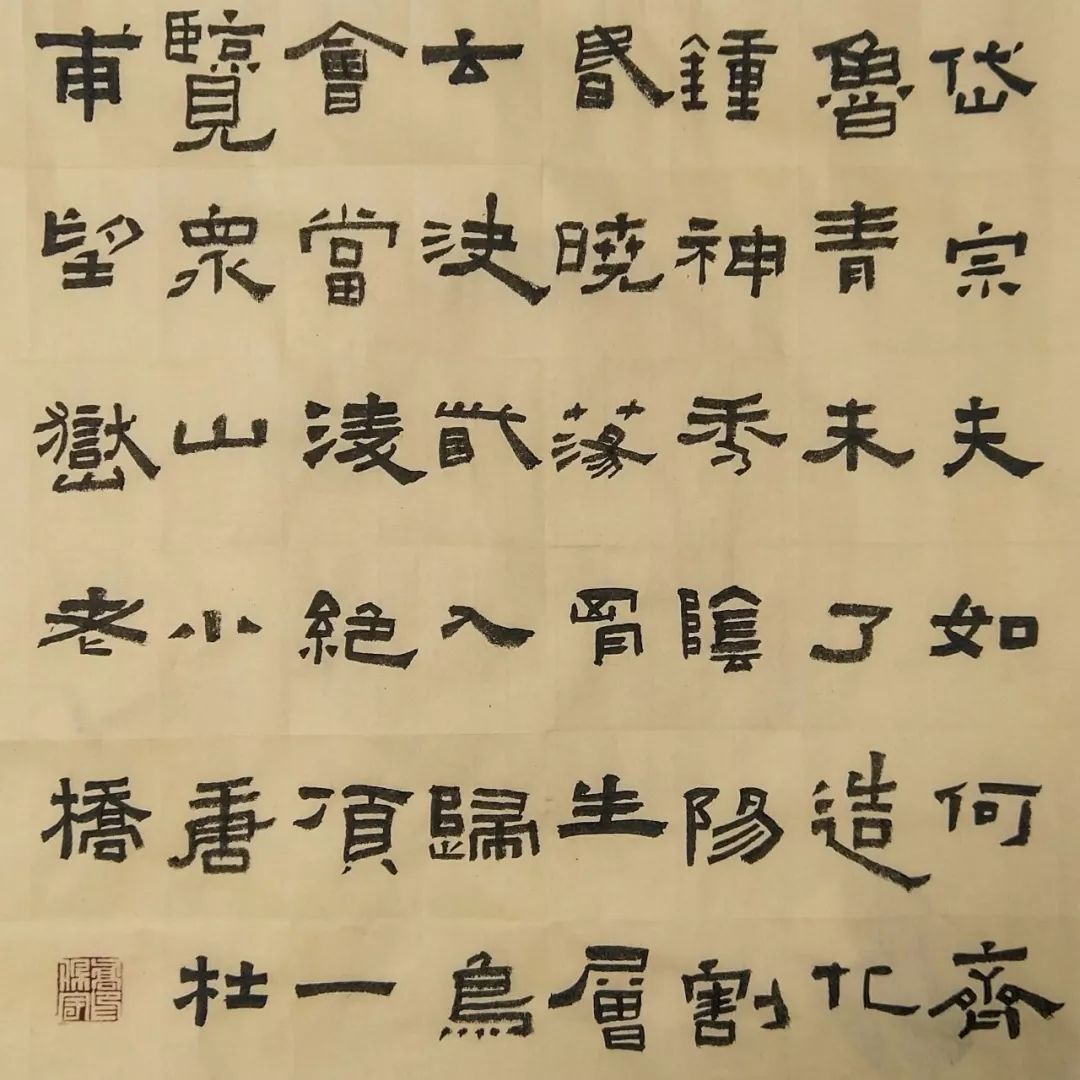 岱宗夫如何齊
魯青未了造化
鍾神秀陰陽割
昬曉蕩胷生層
云決眥入歸鳥
會當淩絕頂一
覽眾山小唐杜
甫望嶽老橋